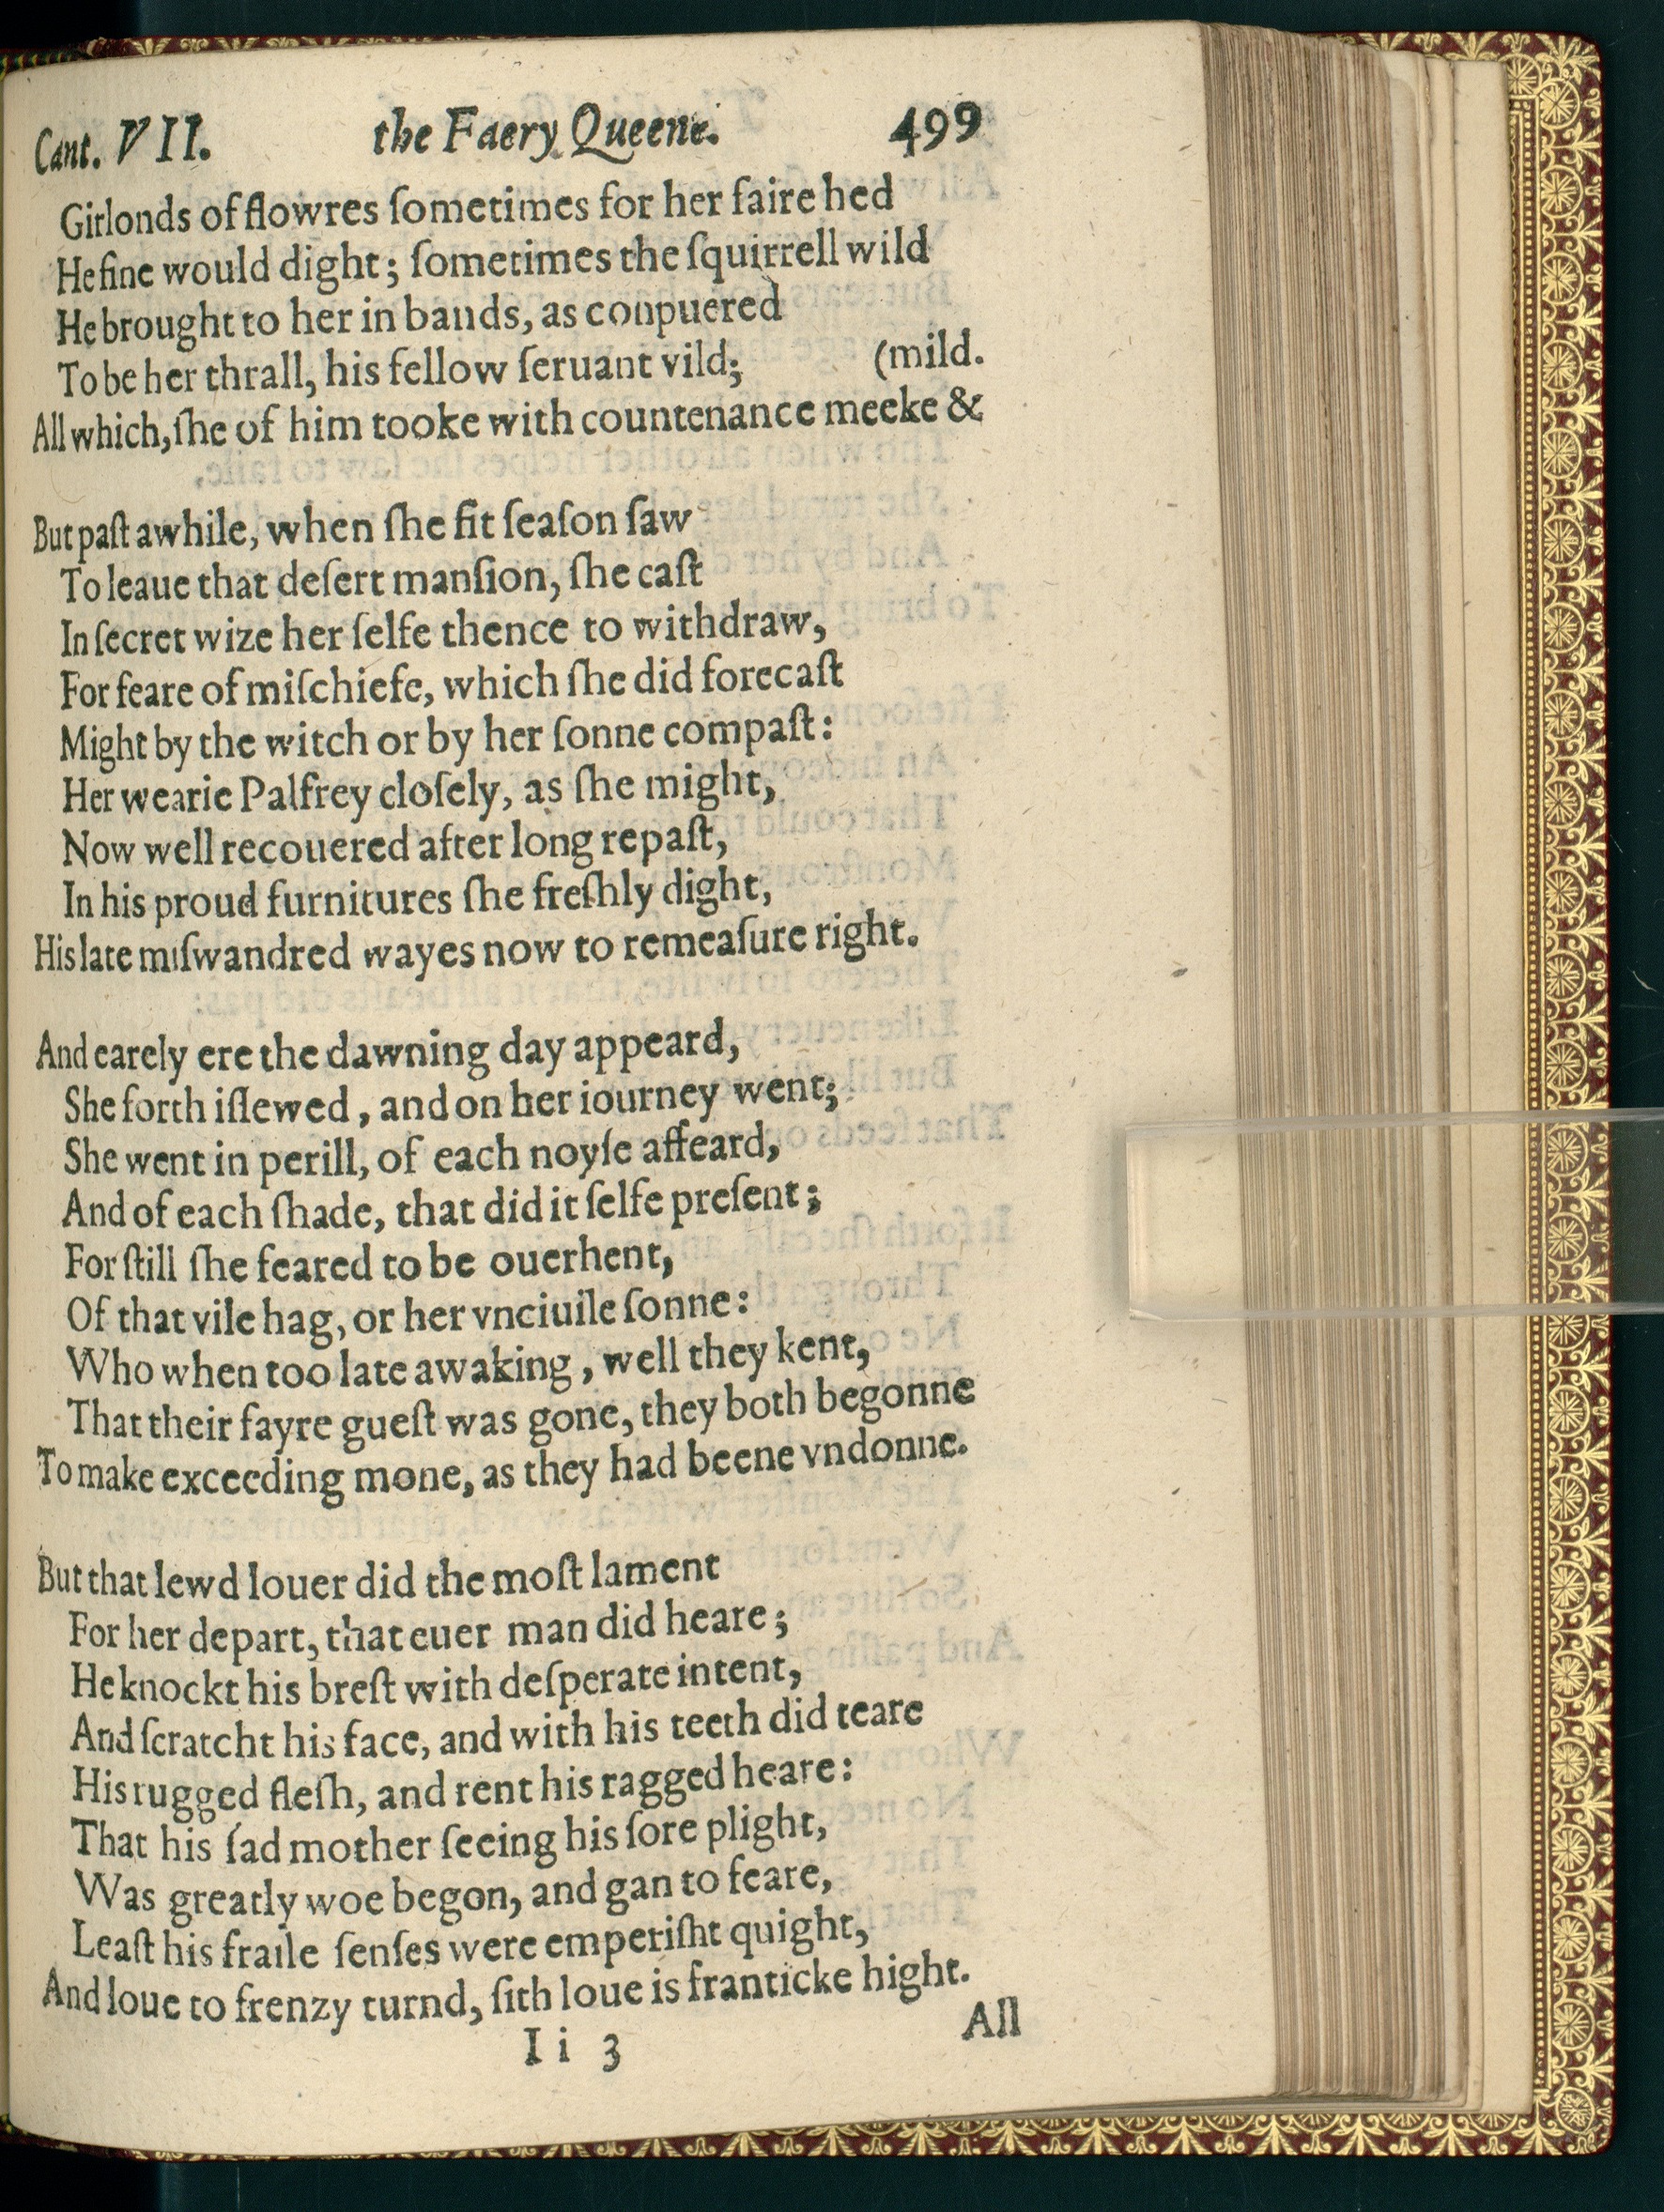 Cant. VII. the Faery Queene. 499
Girlonds of flowres ſometimes for her faire hed
He fine would dight; ſometimes the ſquirrell wild
He brought to her in bands, as conpuered
To be her thrall, his fellow ſeruant vild; (mild.
All which, ſhe of him tooke with countenance meeke &
But paſt awhile, when ſhe fit ſeaſon ſaw
To leaue that deſert manſion, ſhe caſt
In ſecret wize her ſelfe thence to withdraw,
For feare of miſchiefe, which ſhe did forecaſt
Might by the witch or by her ſonne compaſt:
Her wearie Palfrey cloſely, as ſhe might,
Now well recouered after long repaſt,
In his proud furnitures ſhe freſhly dight,
His late miſwandred wayes now to remeaſure right.
And earely ere the dawning day appeard,
She forth iſſewed, and on her iourney went;
She went in perill, of each noyſe affeard,
And of each ſhade, that did it ſelfe preſent;
For ſtill ſhe feared to be ouerhent,
Of that vile hag, or her vnciuile ſonne:
Who when too late awaking, well they kent,
That their fayre gueſt was gone, they both begonne
To make exceeding mone, as they had beene vndonne.
But that lewd louer did the moſt lament
For her depart, that euer man did heare;
He knockt his breſt with deſperate intent,
And ſcratcht his face, and with his teeth did teare
His rugged fleſh, and rent his ragged heare:
That his ſad mother ſeeing his ſore plight,
Was greatly woe begon, and gan to feare,
Leaſt his fraile ſenſes were emperiſht quight,
And loue to frenzy turnd, ſith loue is franticke hight.
I i 3 All